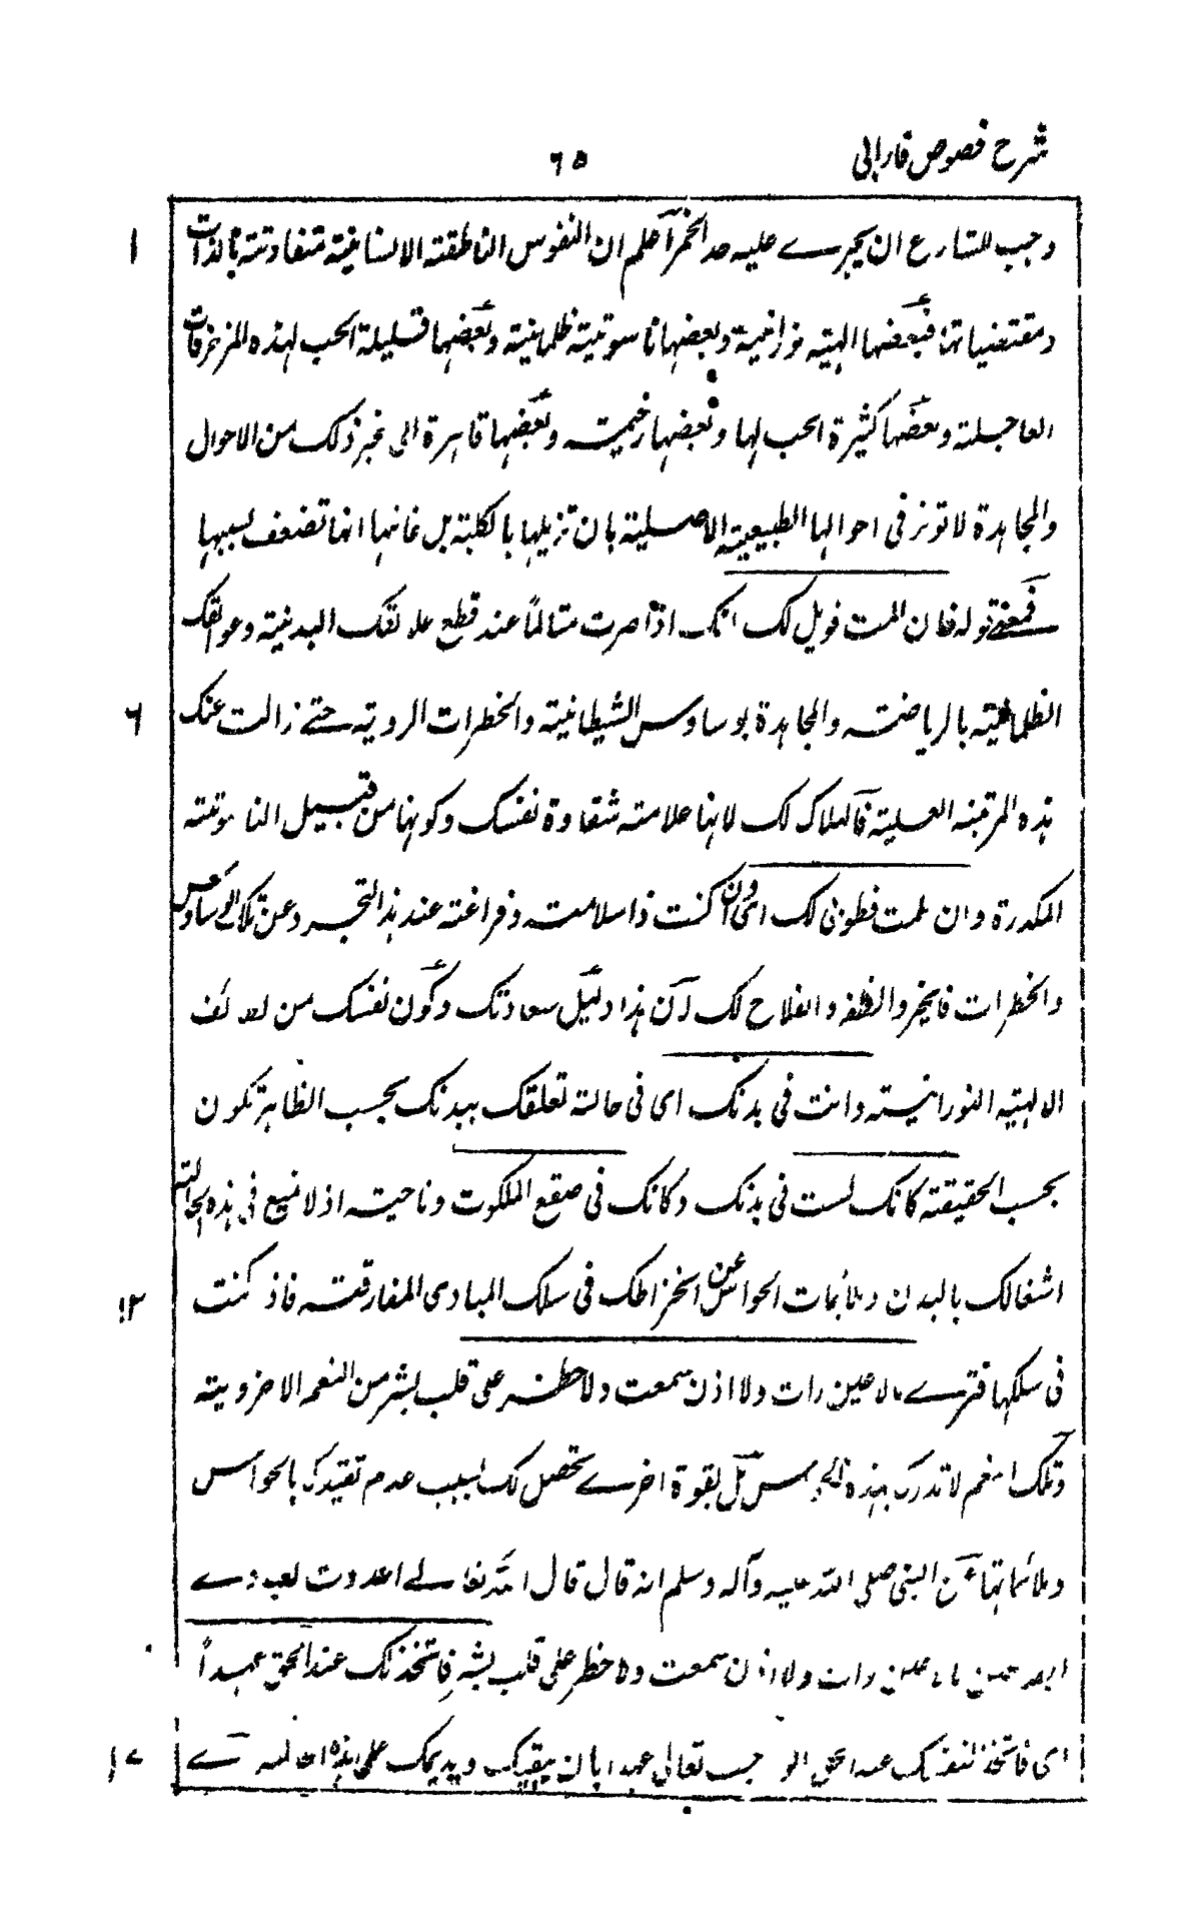 شرح فصوص فارابی
٦٥
وجب للشارع ان یجرے علیه حد الخمر اعلم ان النفوس الناطقة الانسانیة متفاوتة بالذات
١
ومقتضیاتها فبعضها الهیة نورانیة وبعضها ناسوتیة ظلمانیة وبعضها قلیلة الحب لهذه المزخرفات
العاجلة وبعضها کثیرة الحب لها وبعضها رحیمة وبعضها قاهرة الی غیر ذلک من الاحوال
والمجاهدة لا توثر فی احوالها الطبیعیة الاصلیة بان تزیلها بالکلیة بل غایتها انها تضعف بسببها
فمعنے قوله فان المت فویل لک انک اذا صرت متالماً عند قطع علائقک البدنیة وعوائقک
الظلمانیة بالریاضة والمجاهدة بوساوس الشیطانیة والخطرات الردیة حتے زالت عنک
٦
هذه المرتبة العلیة فالهلاک لک لانها علامة شقاوة نفسک وکونها من قبیل الناسوتیة
المکدرة وان سلمت فطوبی لک ای وان کنت ذا سلامة وفراغة عند هذا التجرد عن تلک الوساوس
والخطرات فالخیر والظفر والفلاح لک لان هذا دلیل سعادتک وکون نفسک من
الالهیة النورانیة وانت فی بدنک ای فی حالة تعلقک ببدنک بحسب الظاهر تکون
بحسب الحقیقة کانک لست فی بدنک وکانک فی صقع الملکوت وناحیة اذ لا منع فی هذه الحالة
اشغالک بالبدن وملائمات الحواس عن انخراطک فی سلک المبادی المفارقة فاذ کنت
١٢
فی سلکها فترے ما لا عین رات ولا اذن سمعت ولا خطر علی قلب بشر من النعم الاخرویة
وتلک النعم لا تدرک بهذه الحواس بل بقوة اخرے تحصل لک بسبب عدم تقیدک بالحواس
وملائماتها عن النبی صلی الله علیه وآله وسلم انه قال قال الله تعالے اعددت لعبادے
الصالحین ما لا عین رات ولا اذن سمعت ولا خطر علی قلب بشر فاتخذ لک عند الحق عهداً
ای فاتخذ لنفسک عند الحق الواجب تعالی عهدا بان یبقیک ویدیمک علی هذه الحالة
١٧